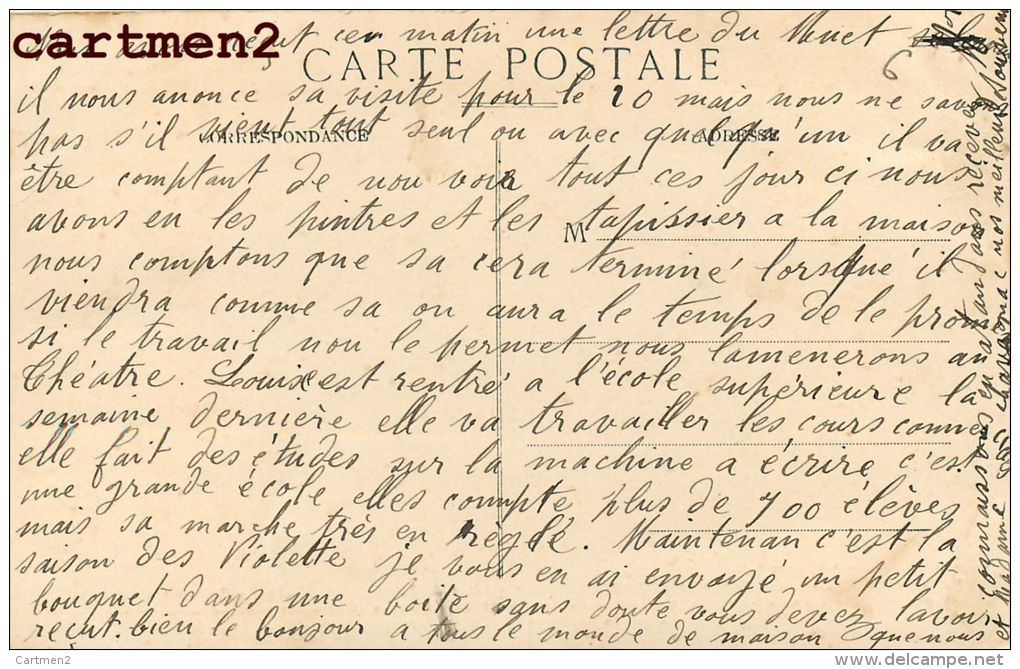 cartmen2
reçut ce matin une lettre du Muet
CARTE POSTALE
il nous anonce sa visite pour le 20 mais nous ne savons
CORRESPONDANCE
ADRESSE
pas s'il vient tout seul ou avec quelqu'un il va
être comptant de nou voir tout ces jour ci nous
avons eu les pintres et les tapissier a la maison
M
nous comptons que sa cera terminé lorsqué il
viendra comme sa on aura le temps de le prom
si le travail nou le permet nous lamenerons au
théatre. Louise est rentré a l'école supérieure la
semaine dernière elle va travailler les cours comme
elle fait des études sur la machine a écrire c'est
une grande école elles compte plus de 700 élèves
mais sa marche très en règlé. Maintenan c'est la
saison des Violette je vous en ai envoyé un petit
bouquet dans une boite sans doute vous devez lavoir
reçut. bien le bonjour a tous le monde de maison que nous
connaissons en atandans recevez
et Madame nos meilleurs
Cartmen2
www.delcampe.net